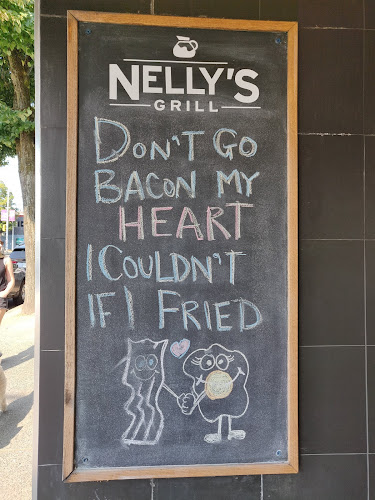 NELLY'S
GRILL
DON'T GO
BACON MY
HEART
I COULDN'T
IF I FRIED